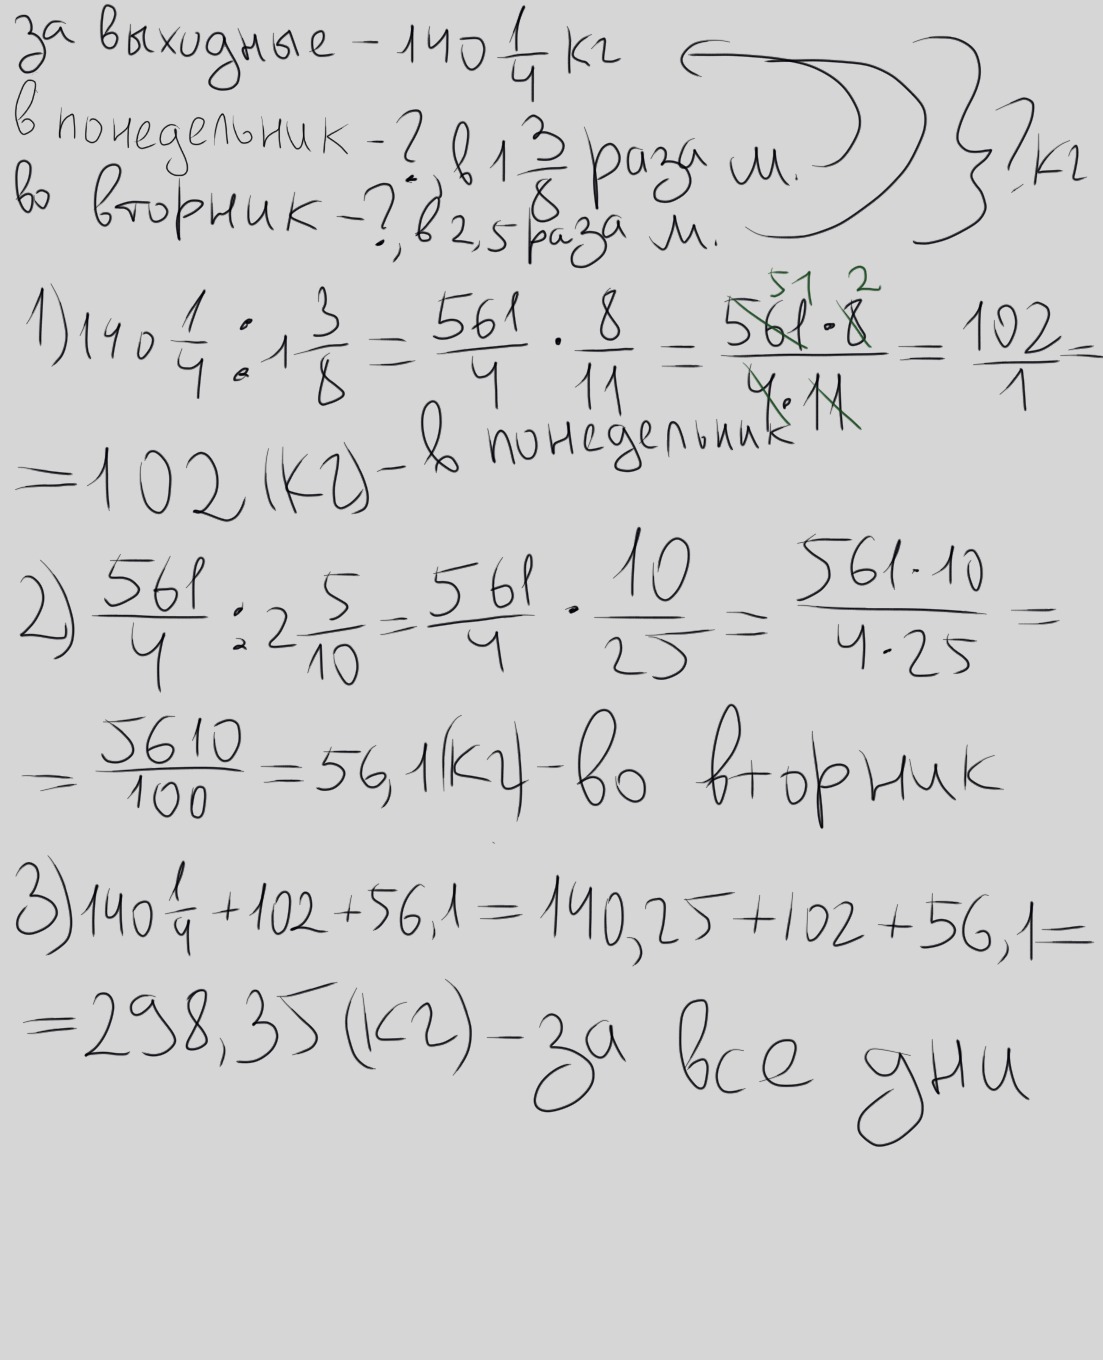 за выходные - 140 1/4 кг
в понедельник - ?, в 1 3/8 раза м.
во вторник - ?, в 2,5 раза м.
? кг
1) 140 1/4 : 1 3/8 = 561/4 · 8/11 = 561·8/4·11 = 102/1 =
51 2
= 102 (кг) - в понедельник
2) 561/4 : 2 5/10 = 561/4 · 10/25 = 561·10/4·25 =
= 5610/100 = 56,1 (кг) - во вторник
3) 140 1/4 + 102 + 56,1 = 140,25 + 102 + 56,1 =
= 298,35 (кг) - за все дни